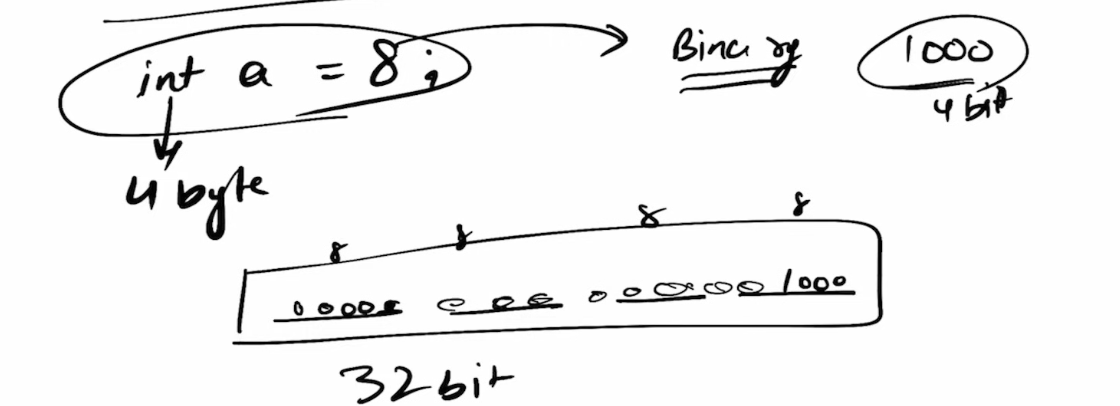 int a = 8; → Binary 1000
4 bit
4 byte
8 8 8 8
00000 000 000000 1000
32 bit